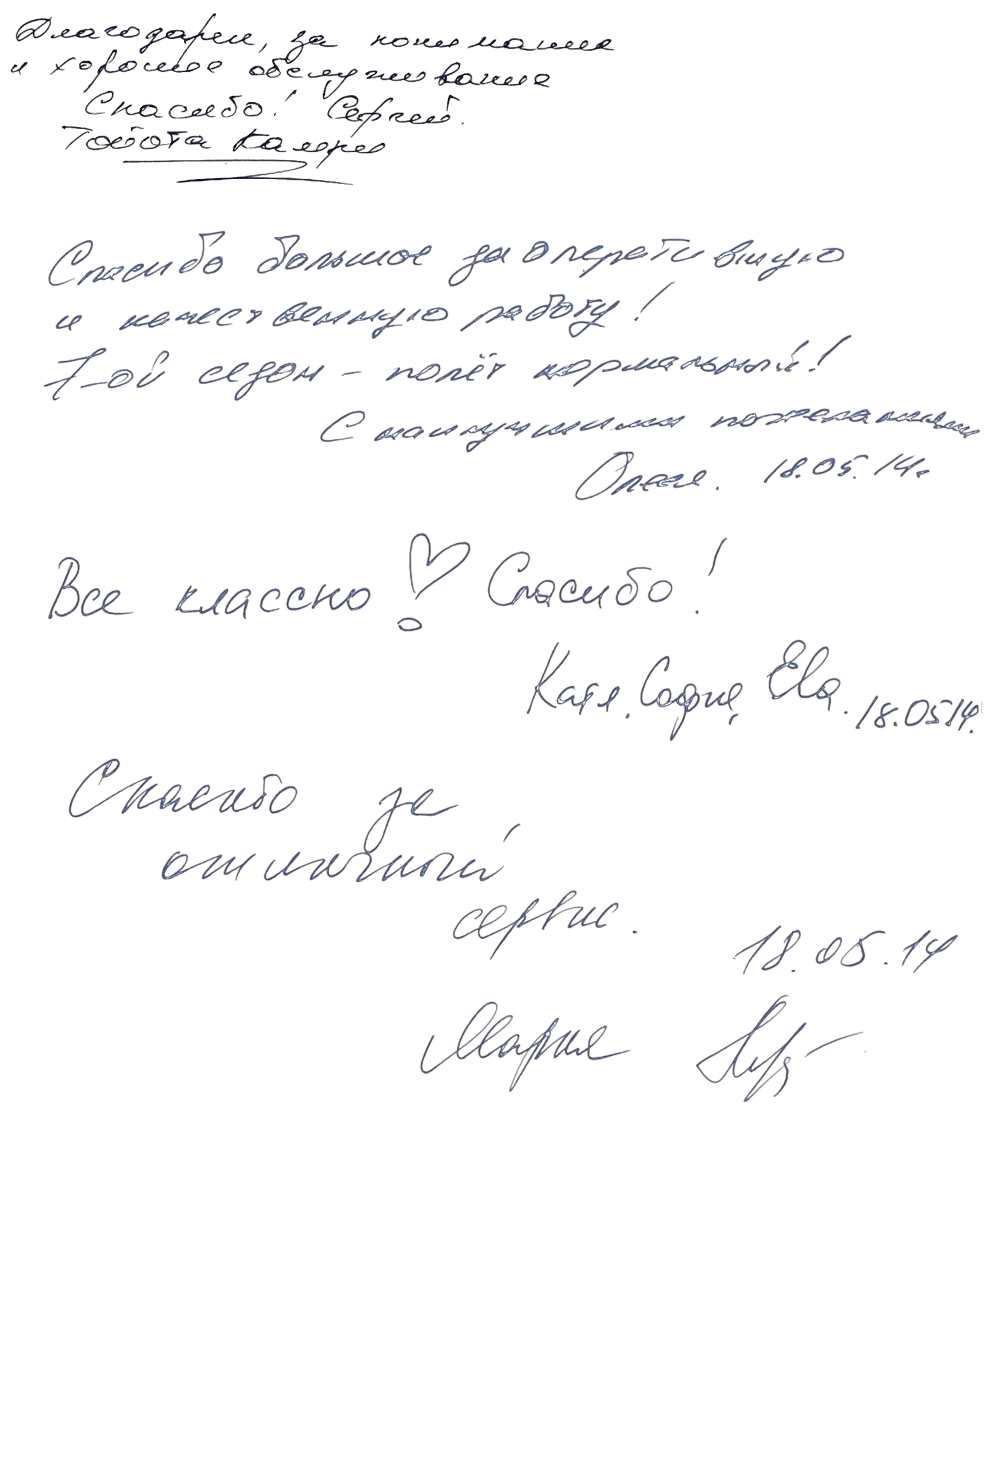 Благодарен, за понимание
и хорошее обслуживание
Спасибо! Сергей.
Тойота Камри
Спасибо большое за оперативную
и качественную работу!
7-ой сезон – полёт нормальный!
С наилучшими пожеланиями
Олеся. 18.05.14г
Все классно! Спасибо!
Катя, София, Ева. 18.0514.
Спасибо за
отличный
сервис.
18.05.14
Мария